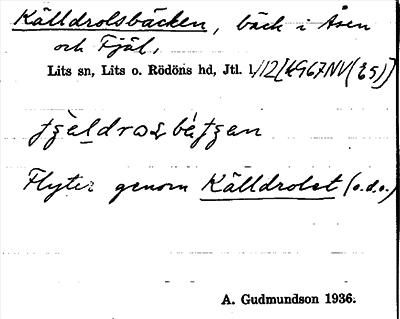 Källdrolsbäcken, bäck i Åsen
och Fjäl,
Lits sn, Lits o. Rödöns hd, Jtl. 1/12[49G7NV(35)]
Flyter genom Källdrolet (o.d.o.)
A. Gudmundson 1936.